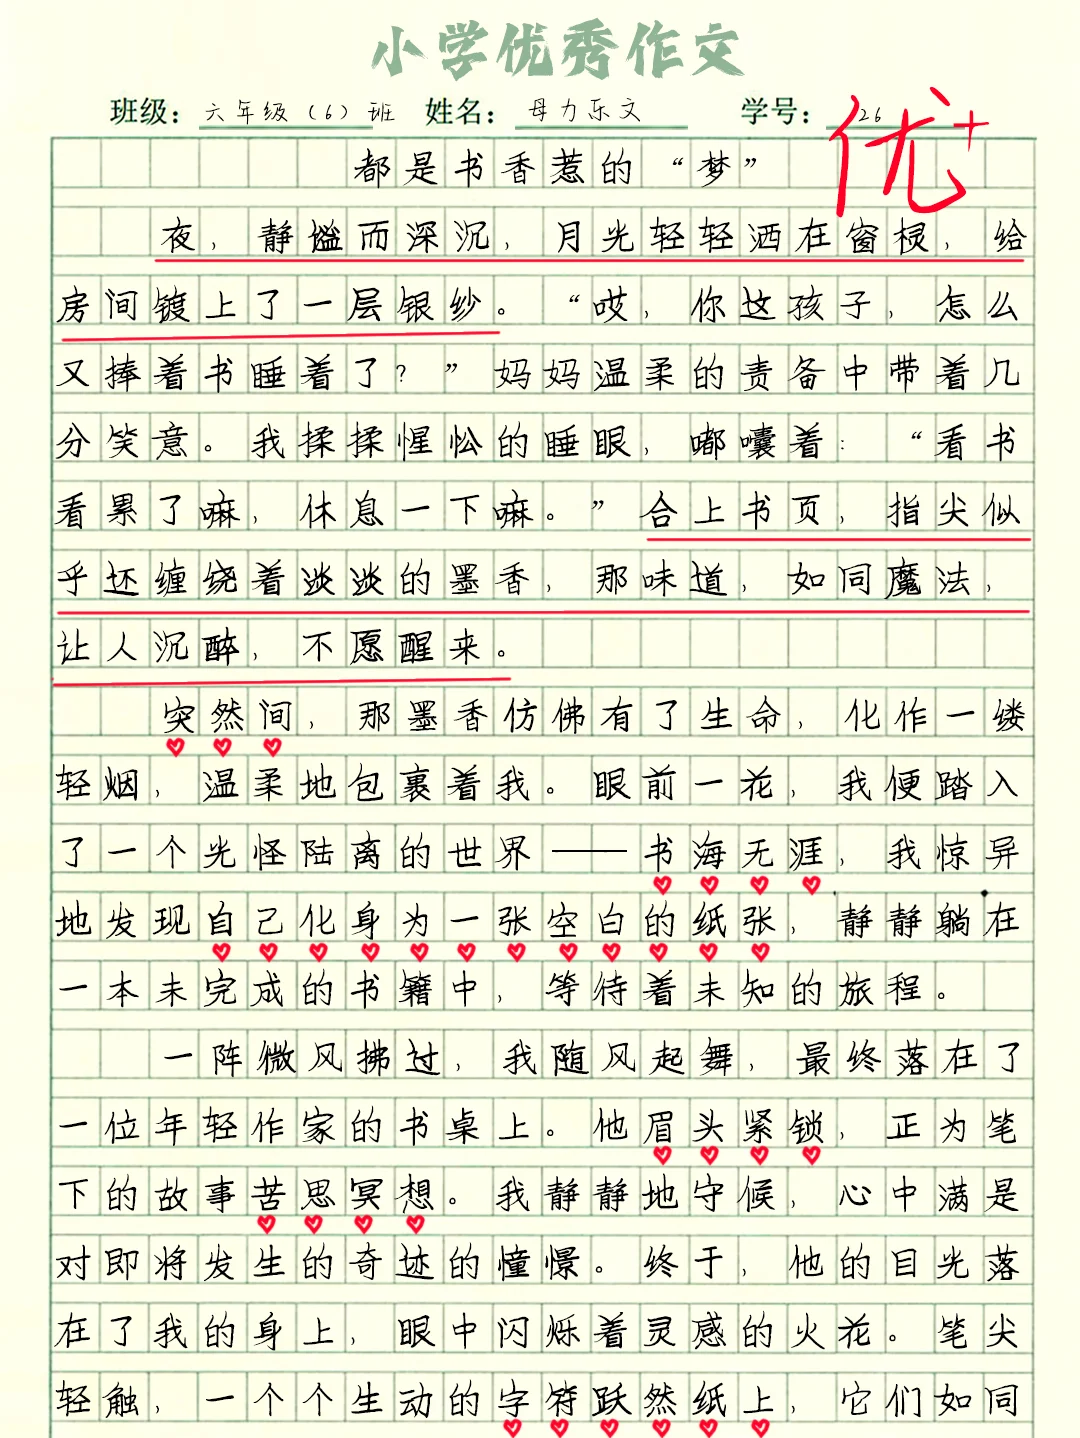 小学优秀作文
班级：六年级（6）班 姓名：母力乐文 学号：26
优+
都是书香惹的“梦”
夜，静谧而深沉，月光轻轻洒在窗棂，给
房间镀上了一层银纱。“哎，你这孩子，怎么
又捧着书睡着了？”妈妈温柔的责备中带着几
分笑意。我揉揉惺忪的睡眼，嘟囔着：“看书
看累了嘛，休息一下嘛。”合上书页，指尖似
乎还缠绕着淡淡的墨香，那味道，如同魔法，
让人沉醉，不愿醒来。
突然间，那墨香仿佛有了生命，化作一缕
轻烟，温柔地包裹着我。眼前一花，我便踏入
了一个光怪陆离的世界——书海无涯，我惊异
地发现自己化身为一张空白的纸张，静静躺在
一本未完成的书籍中，等待着未知的旅程。
一阵微风拂过，我随风起舞，最终落在了
一位年轻作家的书桌上。他眉头紧锁，正为笔
下的故事苦思冥想。我静静地守候，心中满是
对即将发生的奇迹的憧憬。终于，他的目光落
在了我的身上，眼中闪烁着灵感的火花。笔尖
轻触，一个个生动的字符跃然纸上，它们如同